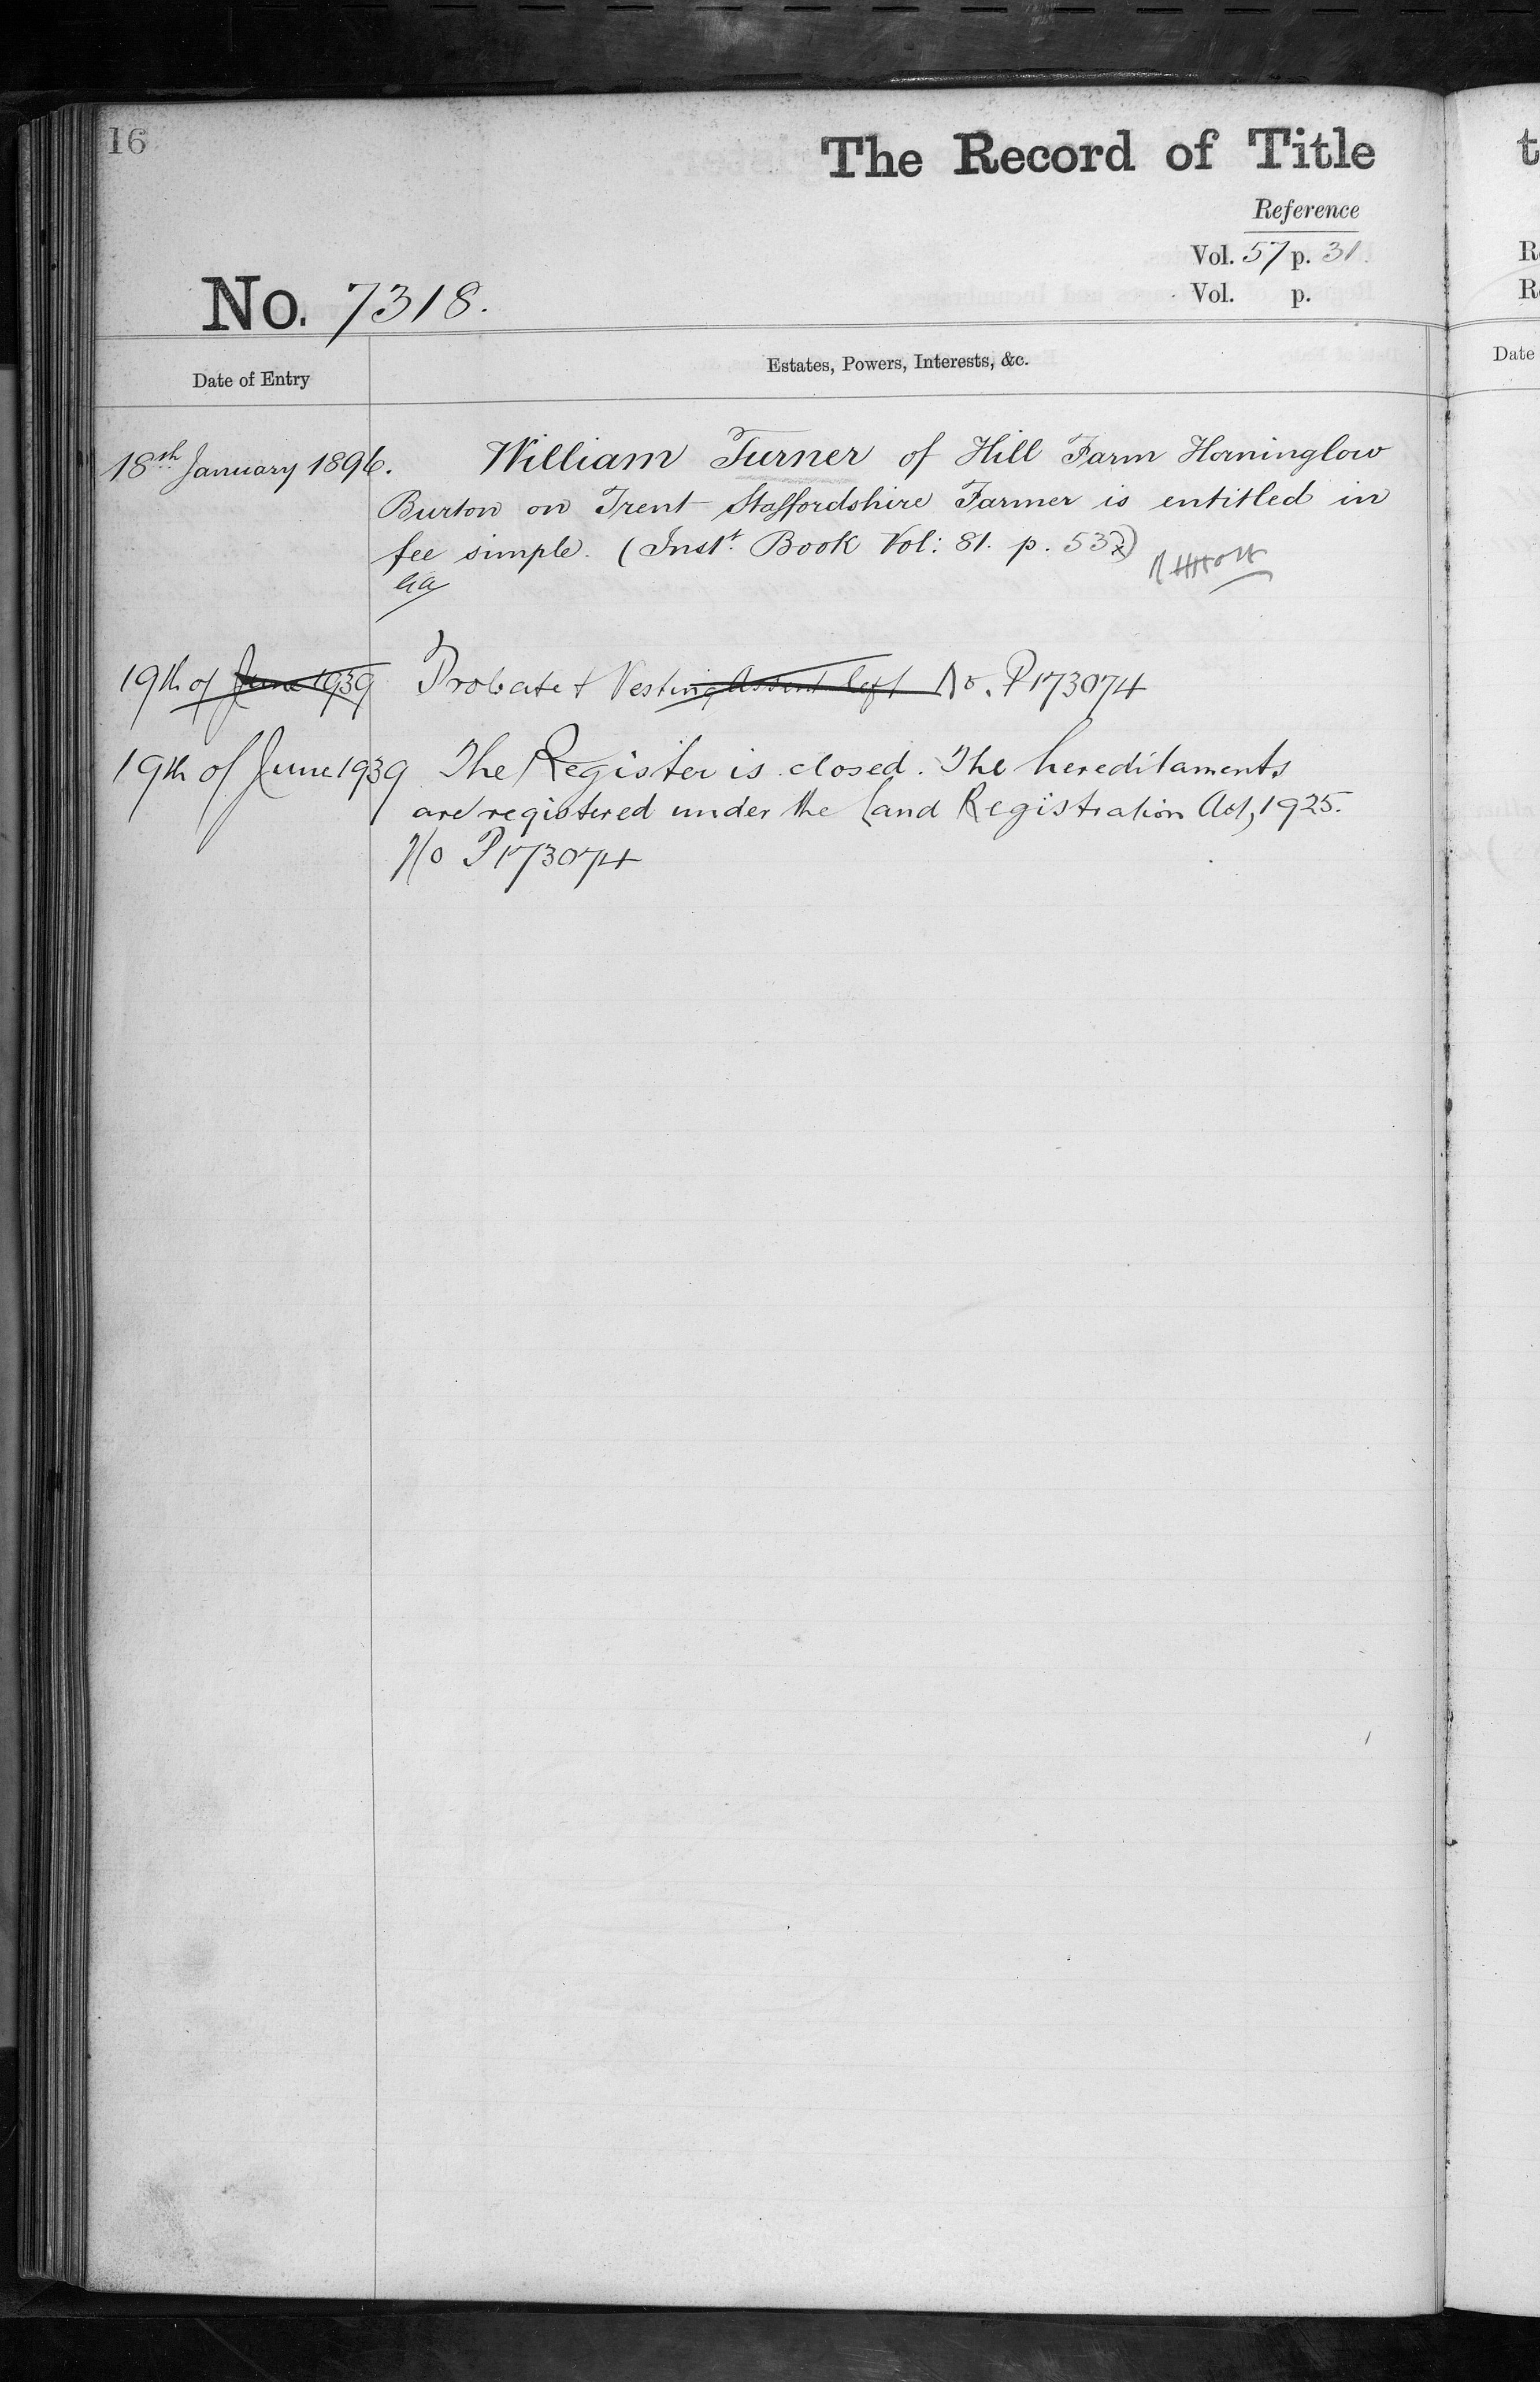 16
The Record of Title
Reference
Vol. 57 p. 31.
No. 7318.
Vol. p.
Date of Entry
Estates, Powers, Interests, &c.
18th January 1896.
William Turner of Hill Farm Horninglow
Burton on Trent Staffordshire Farmer is entitled in
fee simple. (Inst. Book Vol: 81. p. 53)
19th of June 1939
Probate & Vesting Assent left No. P173074
19th of June 1939
The Register is closed. The hereditaments
are registered under the Land Registration Act, 1925.
No P173074
t
R
R
Date